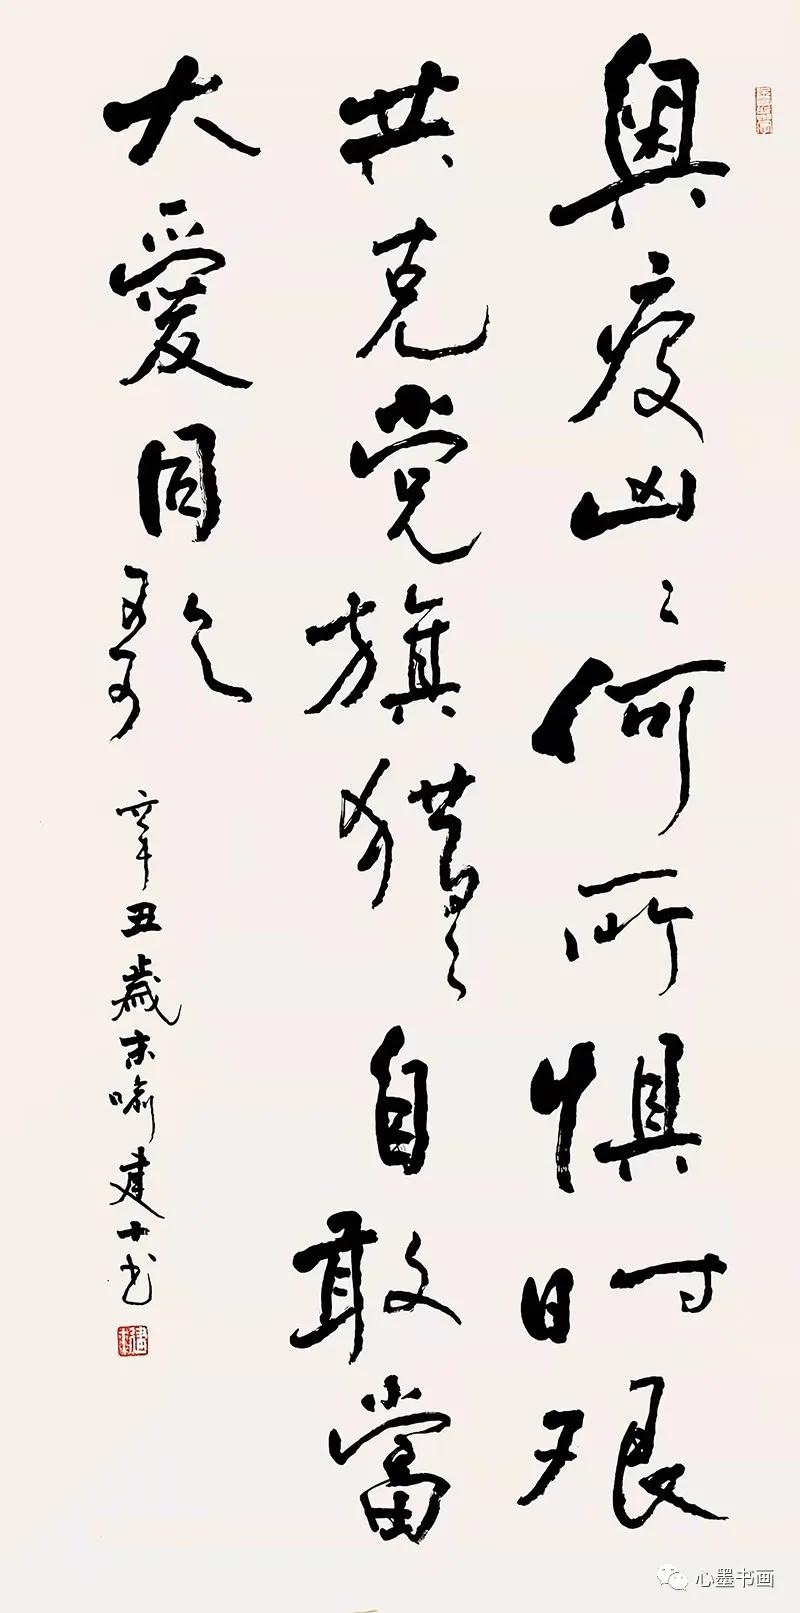 奥疫凶〻何所惧时艰
共克党旗猎〻自敢當
大愛同歌
辛丑歲末喻建十书
心墨书画